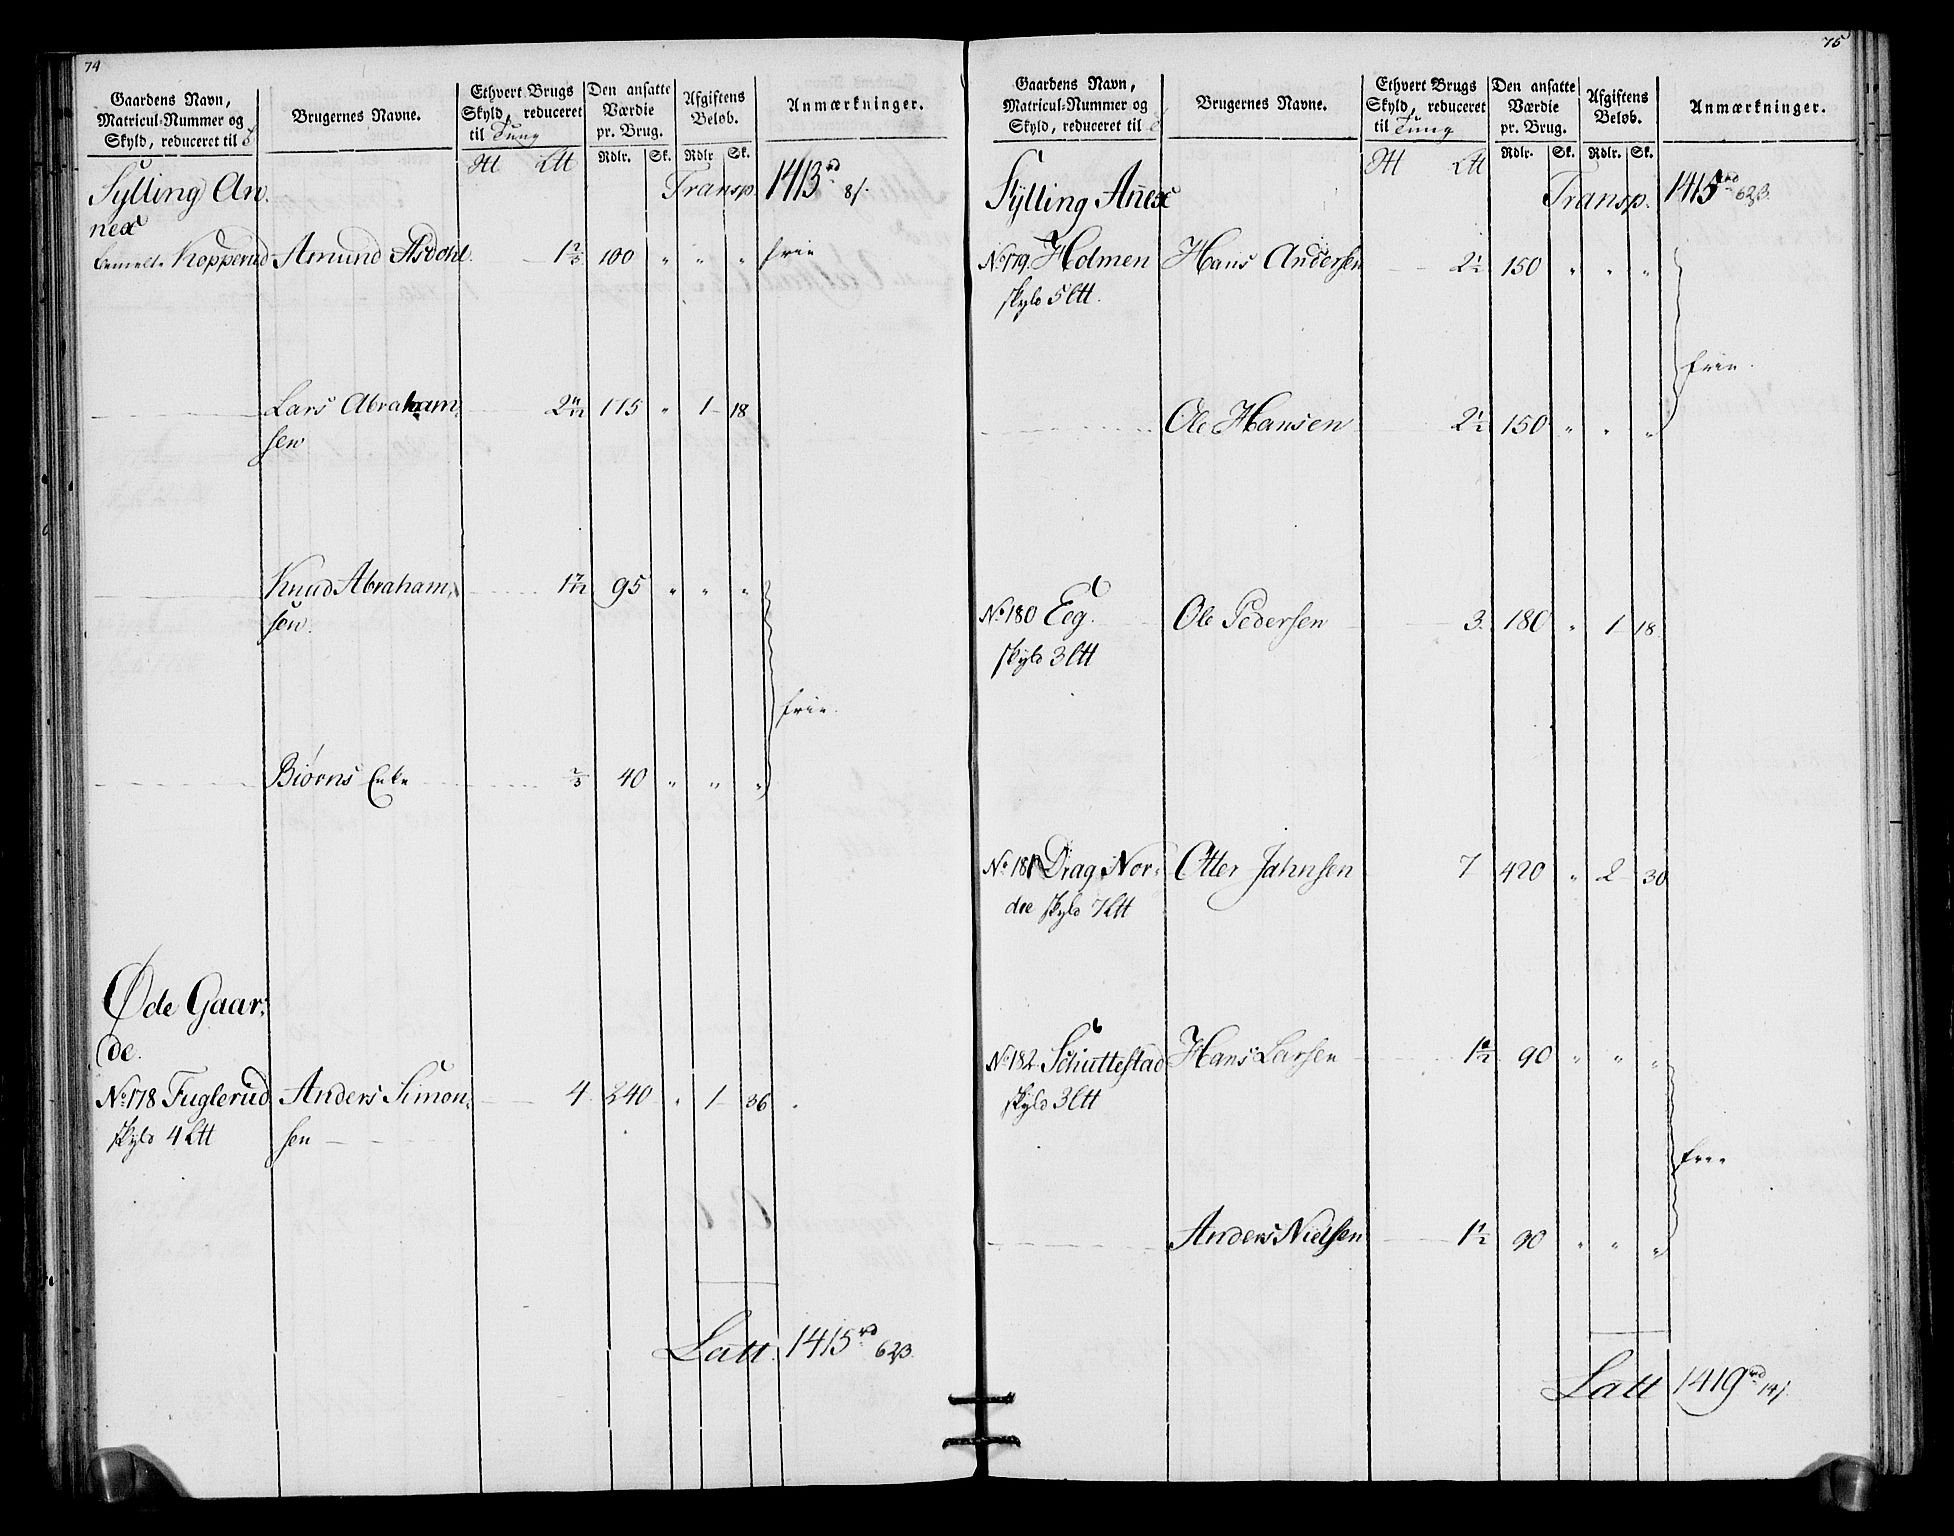 74
Gaardens Navn,
Matricul-Nummer og
Skyld, reduceret til
Brugernes Navne.
Ethvert Brugs
Skyld, reduceret
til Tung
Den ansatte
Værdie
pr. Brug.
Rdlr. Sk.
Afgiftens
Beløb.
Rdlr. Sk.
Anmærkninger.
Sylling An-
nex
Transp. 1413 rd 8 s.
bemelte Kopperud Amund Asdohl 1 2/3 100 " " " frie
Lars Abraham-
sen 2 11/12 175 " 1 18
Knud Abraham-
sen 1 7/12 95 " " "
frie.
Biørns Enke 2/3 40 " " "
Øde Gaar-
de.
No. 178 Fuglerud Anders Simon- 4 240 " 1 36
skyld 4 Ltt sen
Latt. 1415 rd 62 s.
75
Gaardens Navn,
Matricul-Nummer og
Skyld, reduceret til
Brugernes Navne.
Ethvert Brugs
Skyld, reduceret
til Tung
Den ansatte
Værdie
pr. Brug.
Rdlr. Sk.
Afgiftens
Beløb.
Rdlr. Sk.
Anmærkninger.
Sylling Anex
Transp. 1415 rd 62 s.
No. 179. Holmen Hans Andersen 2 1/2 150 " " "
skyld 5 Ltt.
frie.
Ole Hansen 2 1/2 150 " " "
No. 180 Eeg. Ole Pedersen 3. 180 " 1 18
skyld 3 Ltt
No. 181 Drag Nor- Otter Jahnsen 7 420 " 2 30
dre skyld 7 Ltt
No. 182. Schuttestad Hans Larsen 1 1/2 90 " " "
skyld 3 Ltt
frie
Anders Nielsen 1 1/2 90 " " "
Latt 1419 rd 14 s.